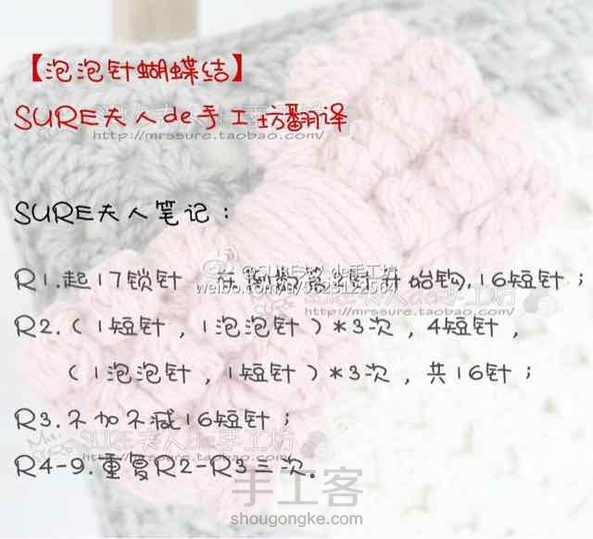 【泡泡针蝴蝶结】
SURE夫人de手工坊翻译
http://mrssure.taobao.com/
SURE夫人笔记：
R1.起17锁针 在 针开始钩,16短针；
R2.（1短针，1泡泡针）*3次，4短针，
（1泡泡针，1短针）*3次，共16针；
R3.不加不减16短针；
SURE夫人de手工坊
R4-9.重复R2-R3三次。
手工客
shougongke.com